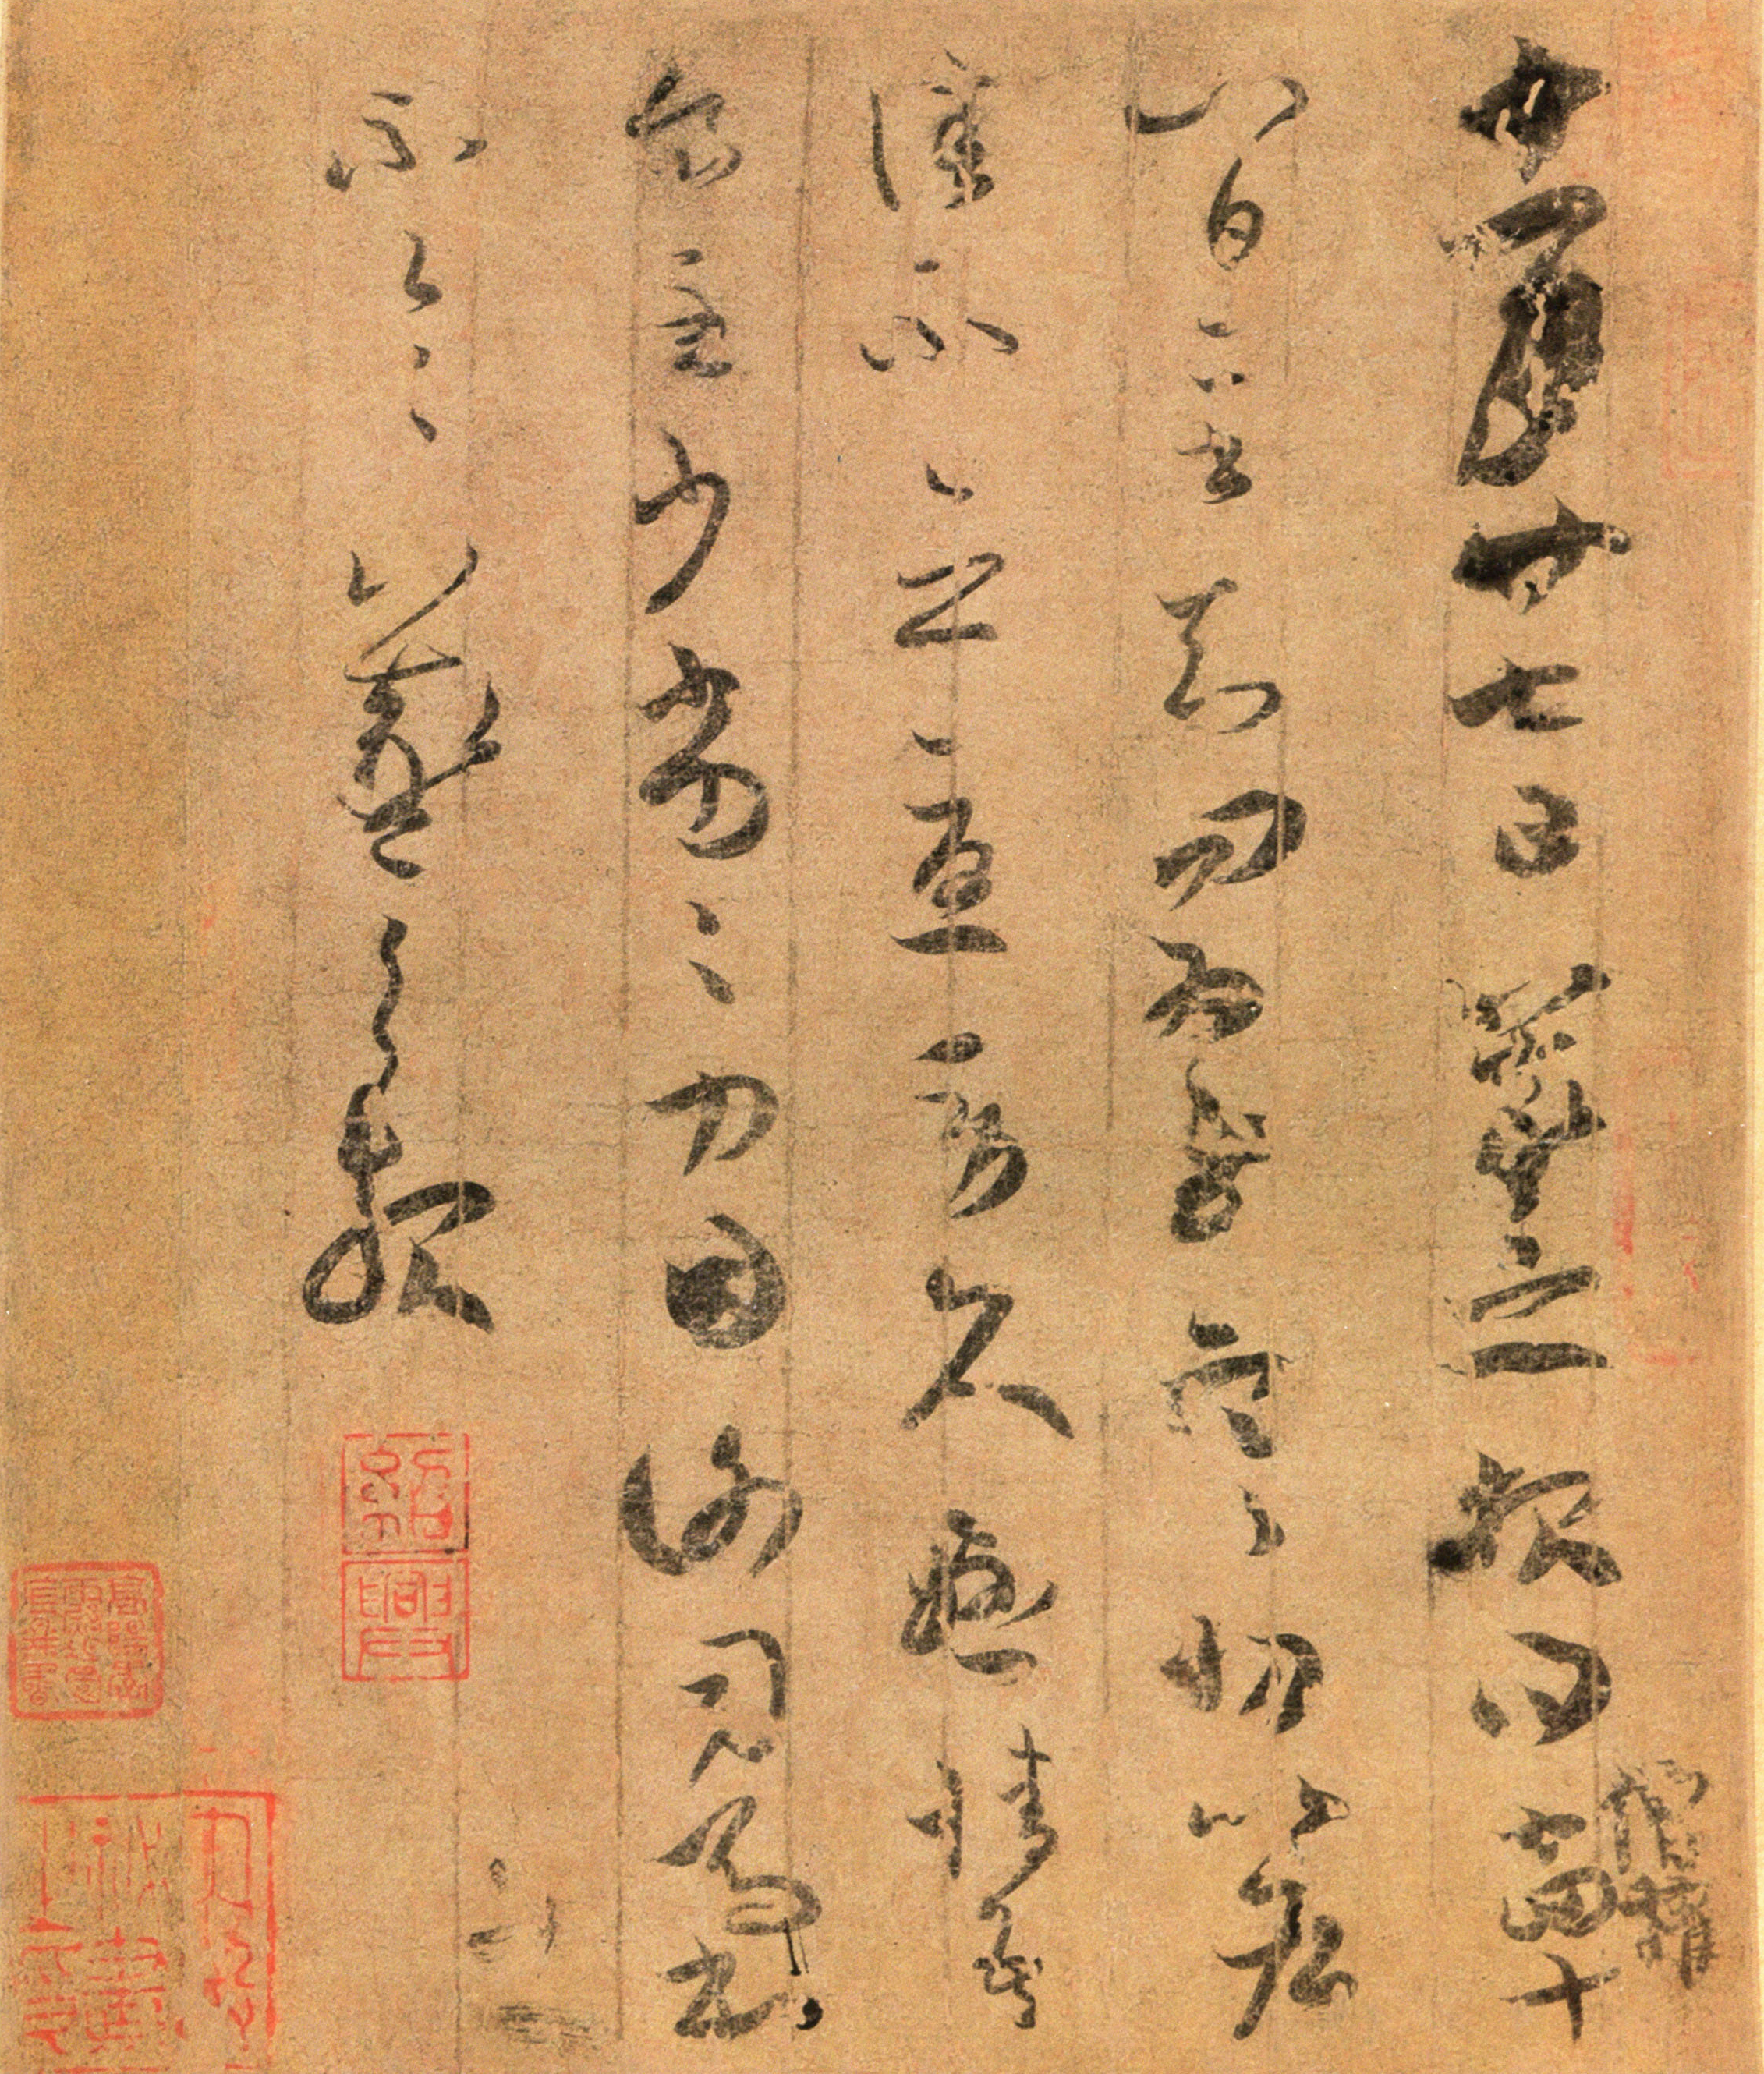 僧權
十一月廿七日羲之報得十四十
八日二書知問為慰寒切比各
佳不念憂勞久懸情吾
食至少劣劣力因謝司馬書
不一一羲之報
紹興